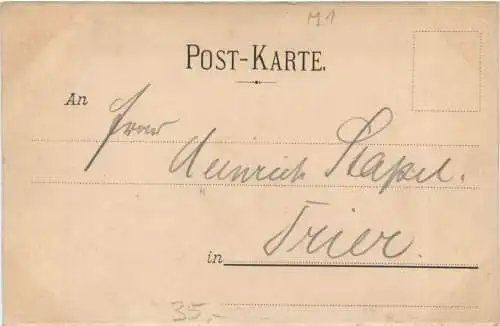 M1
POST-KARTE.
An Frau
Heinrich Stapel.
in Trier.
35,-